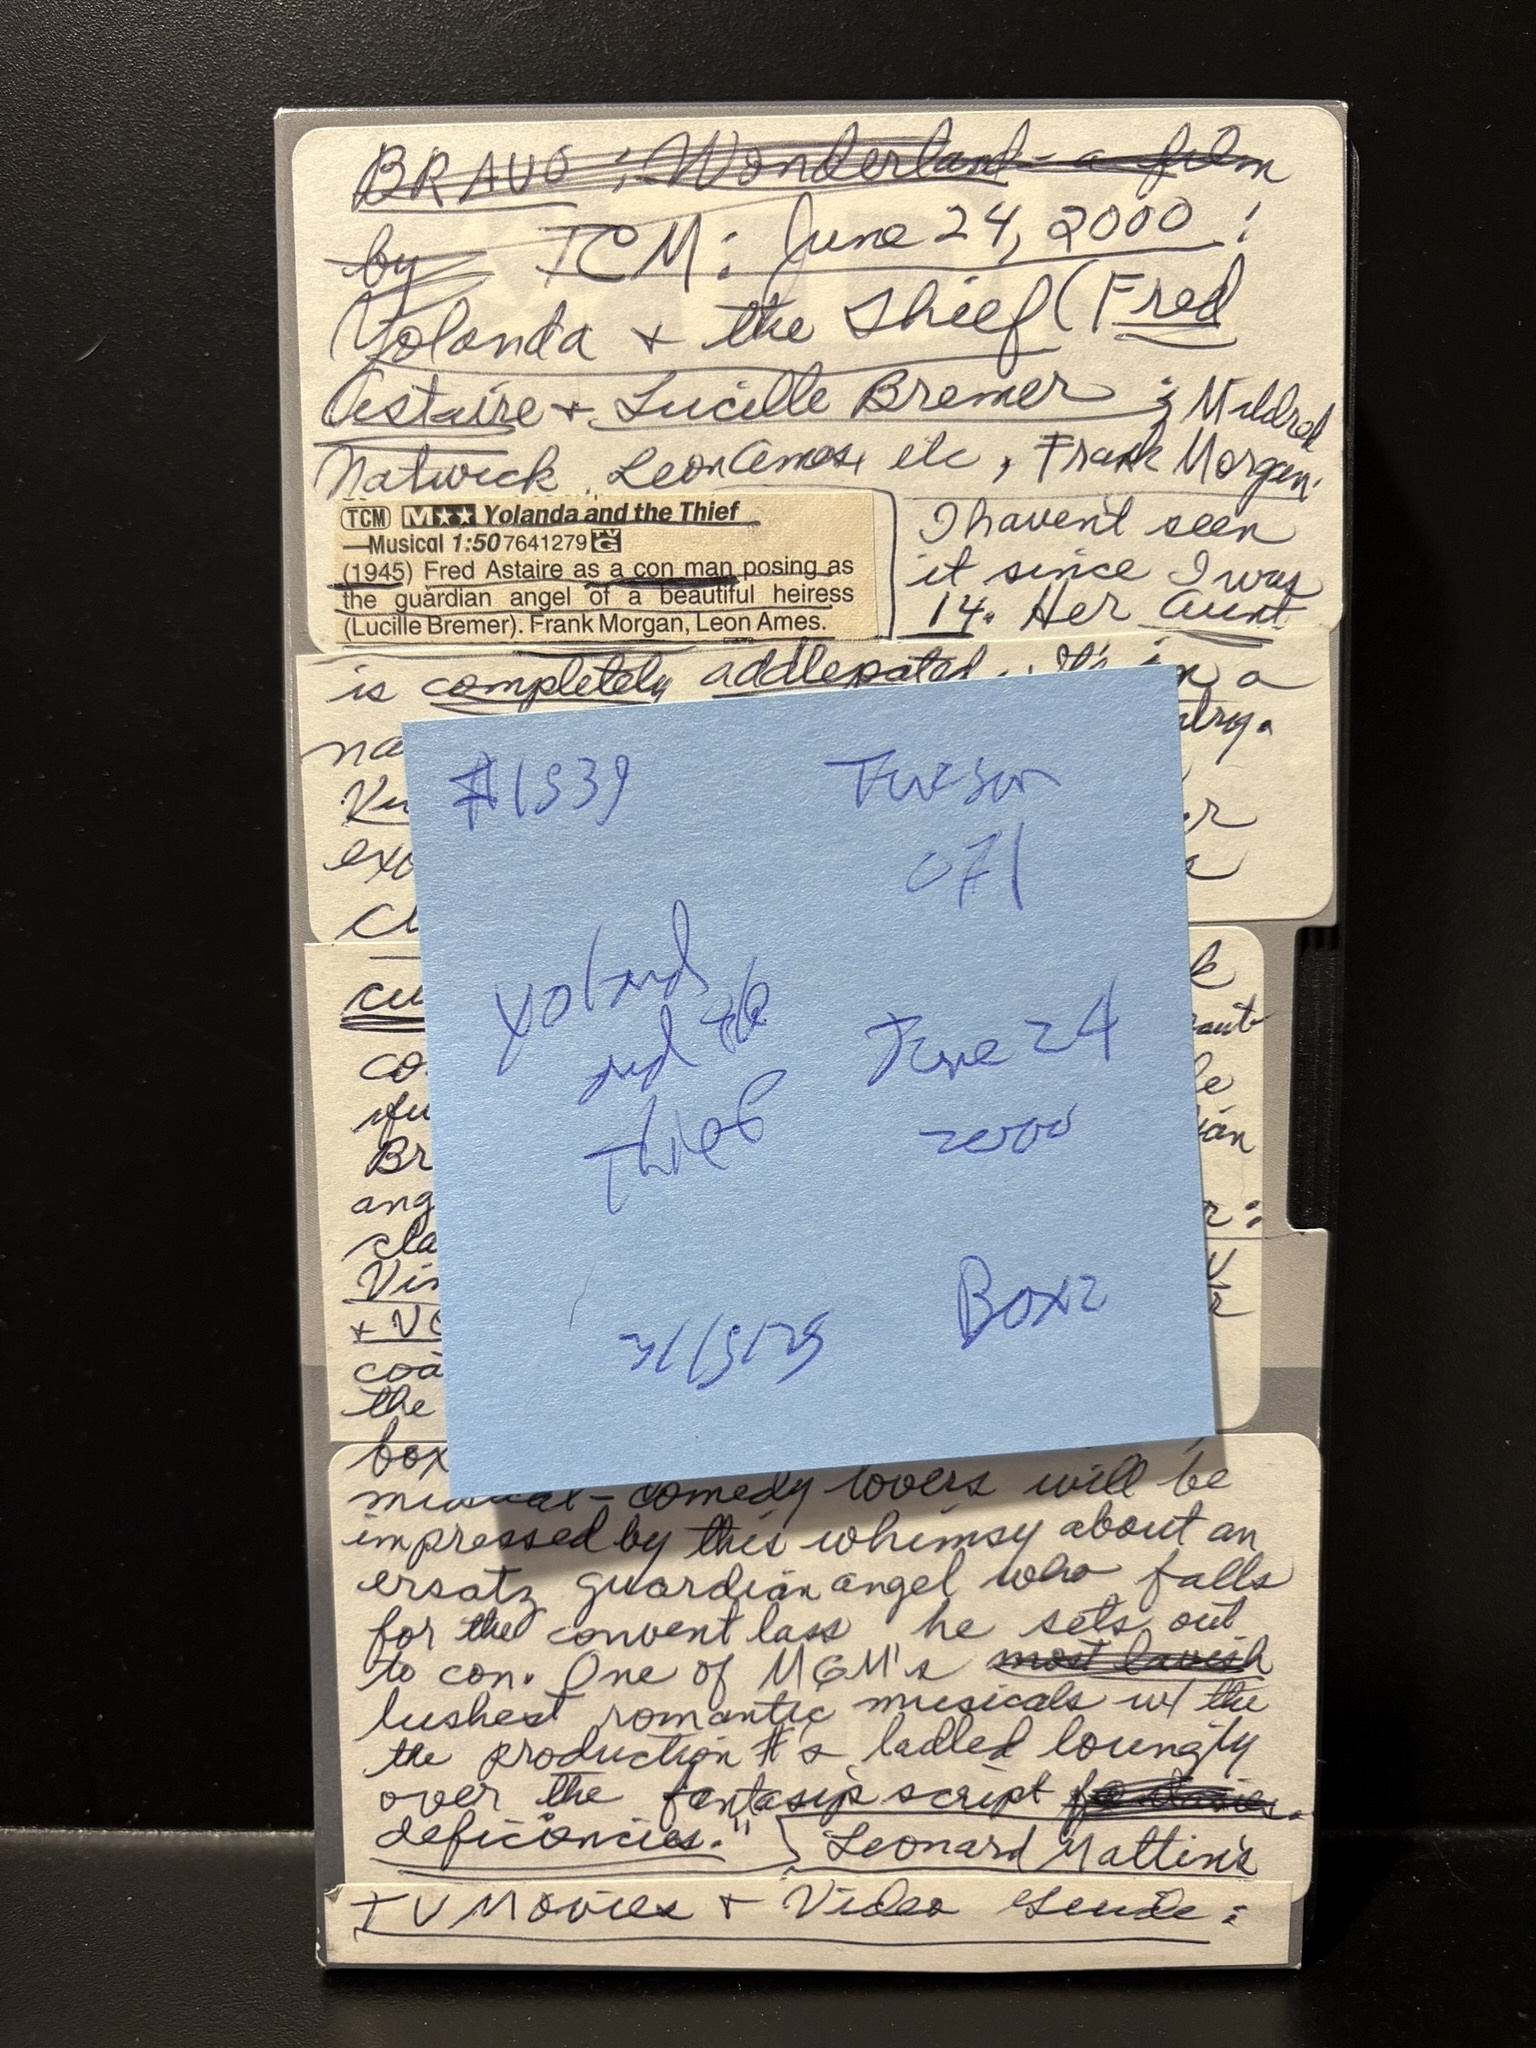 BRAVO: Wonderland - a film
by TCM: June 24, 2000:
Yolanda + the Thief (Fred
Astaire + Lucille Bremer; Mildred
Natwick, Leon Ames, etc, Frank Morgan.
TCM M★★ Yolanda and the Thief
—Musical 1:50 7641279 TVG
(1945) Fred Astaire as a con man posing as
the guardian angel of a beautiful heiress
(Lucille Bremer). Frank Morgan, Leon Ames.
I haven't seen
it since I was
14. Her Aunt
is completely addlepated. It's in a
#1539
Tucson
071
Yoland
and the
Thief
June 24
2000
Box 2
the
box
musical-comedy lovers will be
impressed by this whimsy about an
ersatz guardian angel who falls
for the convent lass he sets out
to con. One of MGM's most lavish
lushest romantic musicals w/ the
the production #'s ladled loungly
over the fantasy's script
deficiencies." Leonard Maltin's
TV Movies + Video Guide: